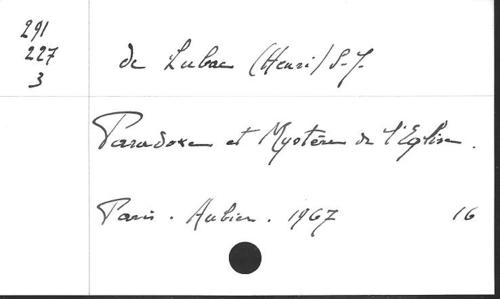 291
227
3
de Lubac (Henri) S.J.
Paradoxe et Mystère de l'Eglise.
Paris. Aubier. 1967 16